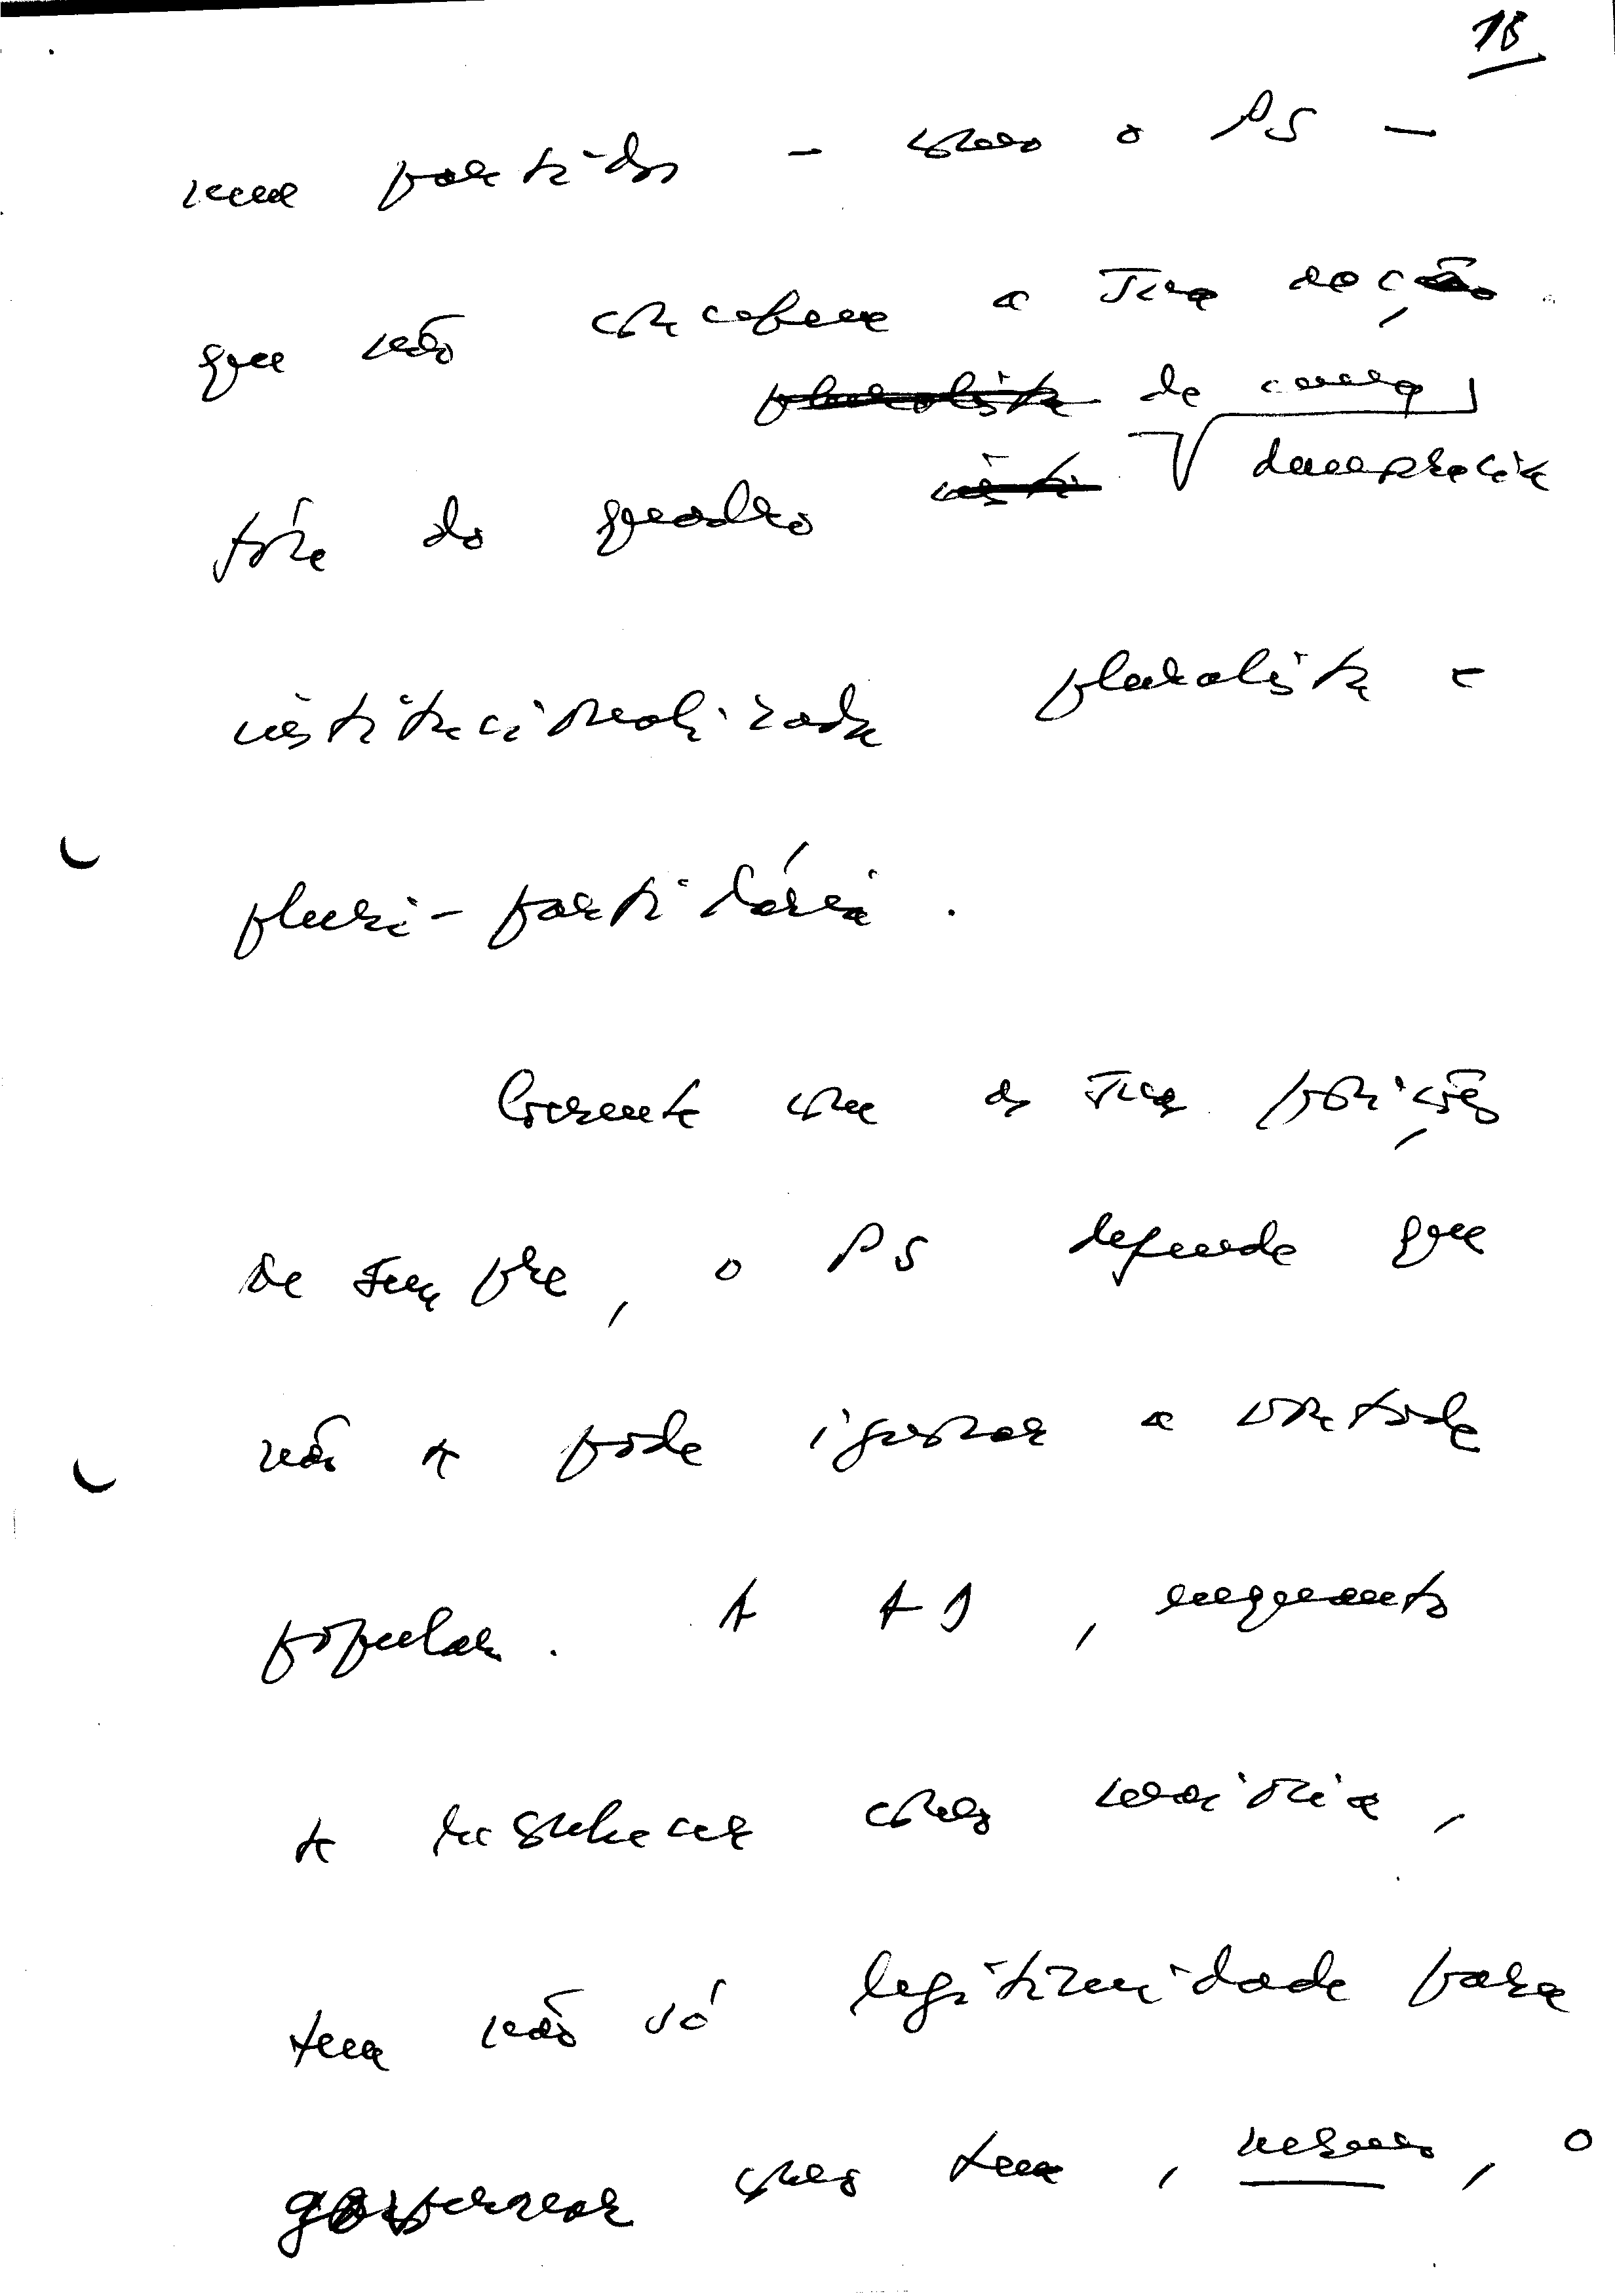 18
num partido - como o PS -
que não concebem a sua acção
pluralista de uma
fora do quadro democracia
institucionalizada pluralista e
pluri-partidária.
Coerente com as suas posições
de sempre, o PS defende que
não se pode ignorar a vontade
popular. A AD, enquanto
se como maioria,
tem não só legitimidade para
governar como tem, mesmo, o